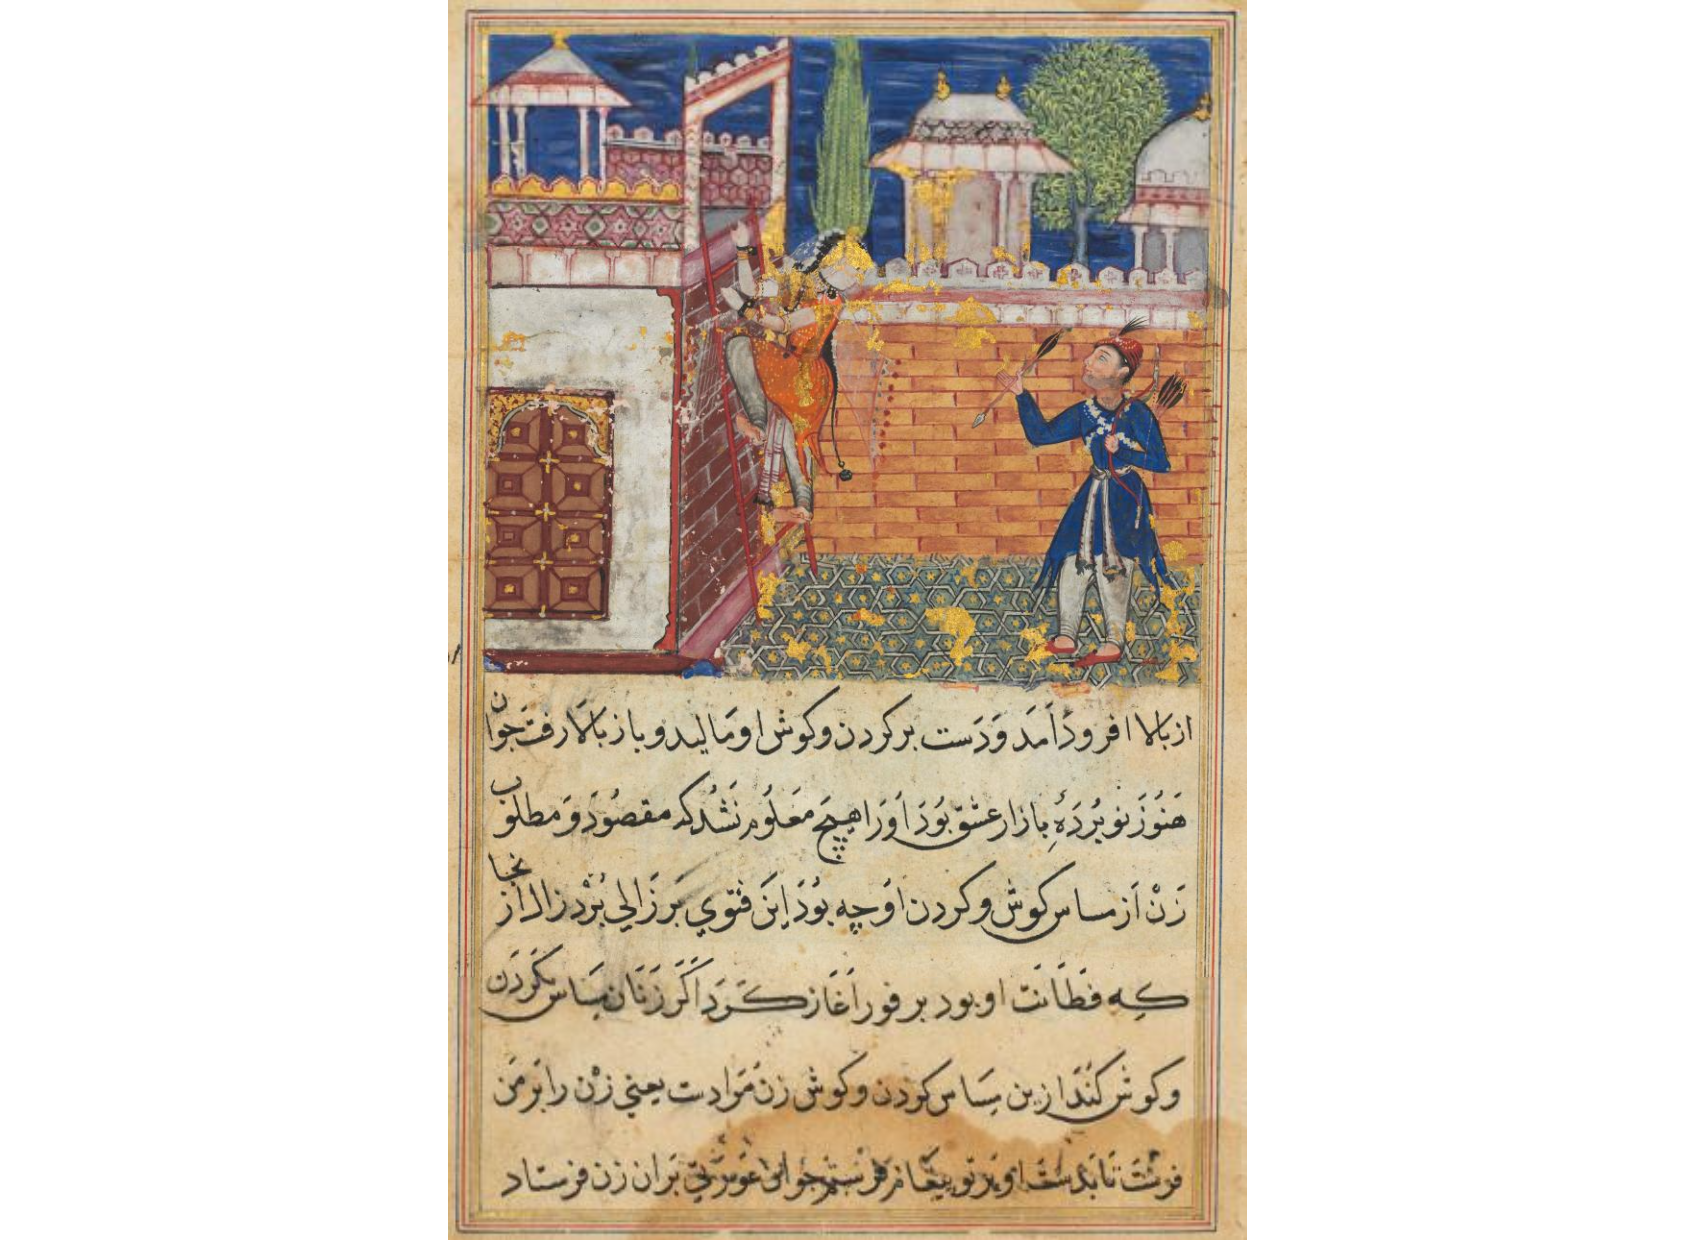 از بالا افرود آمد و دست بر گردن و گوش او مالید و باز بالا رفت جوان
هنوز نو برده بازار عشق بود او را هیچ معلوم نشد که مقصود و مطلوب
زن از مساس گوش و گردن او چه بود این فتوی بر زالی برد زال از آنجا
که فطانت او بود بر فور آغاز کرد اگر زنان مساس گردن
و گوش کنند ازین مساس کردن و گوش زن مرادست یعنی زن را بر من
فرست تا بدست او بر تو پیغام فرستم جوان عورتی بران زن فرستاد